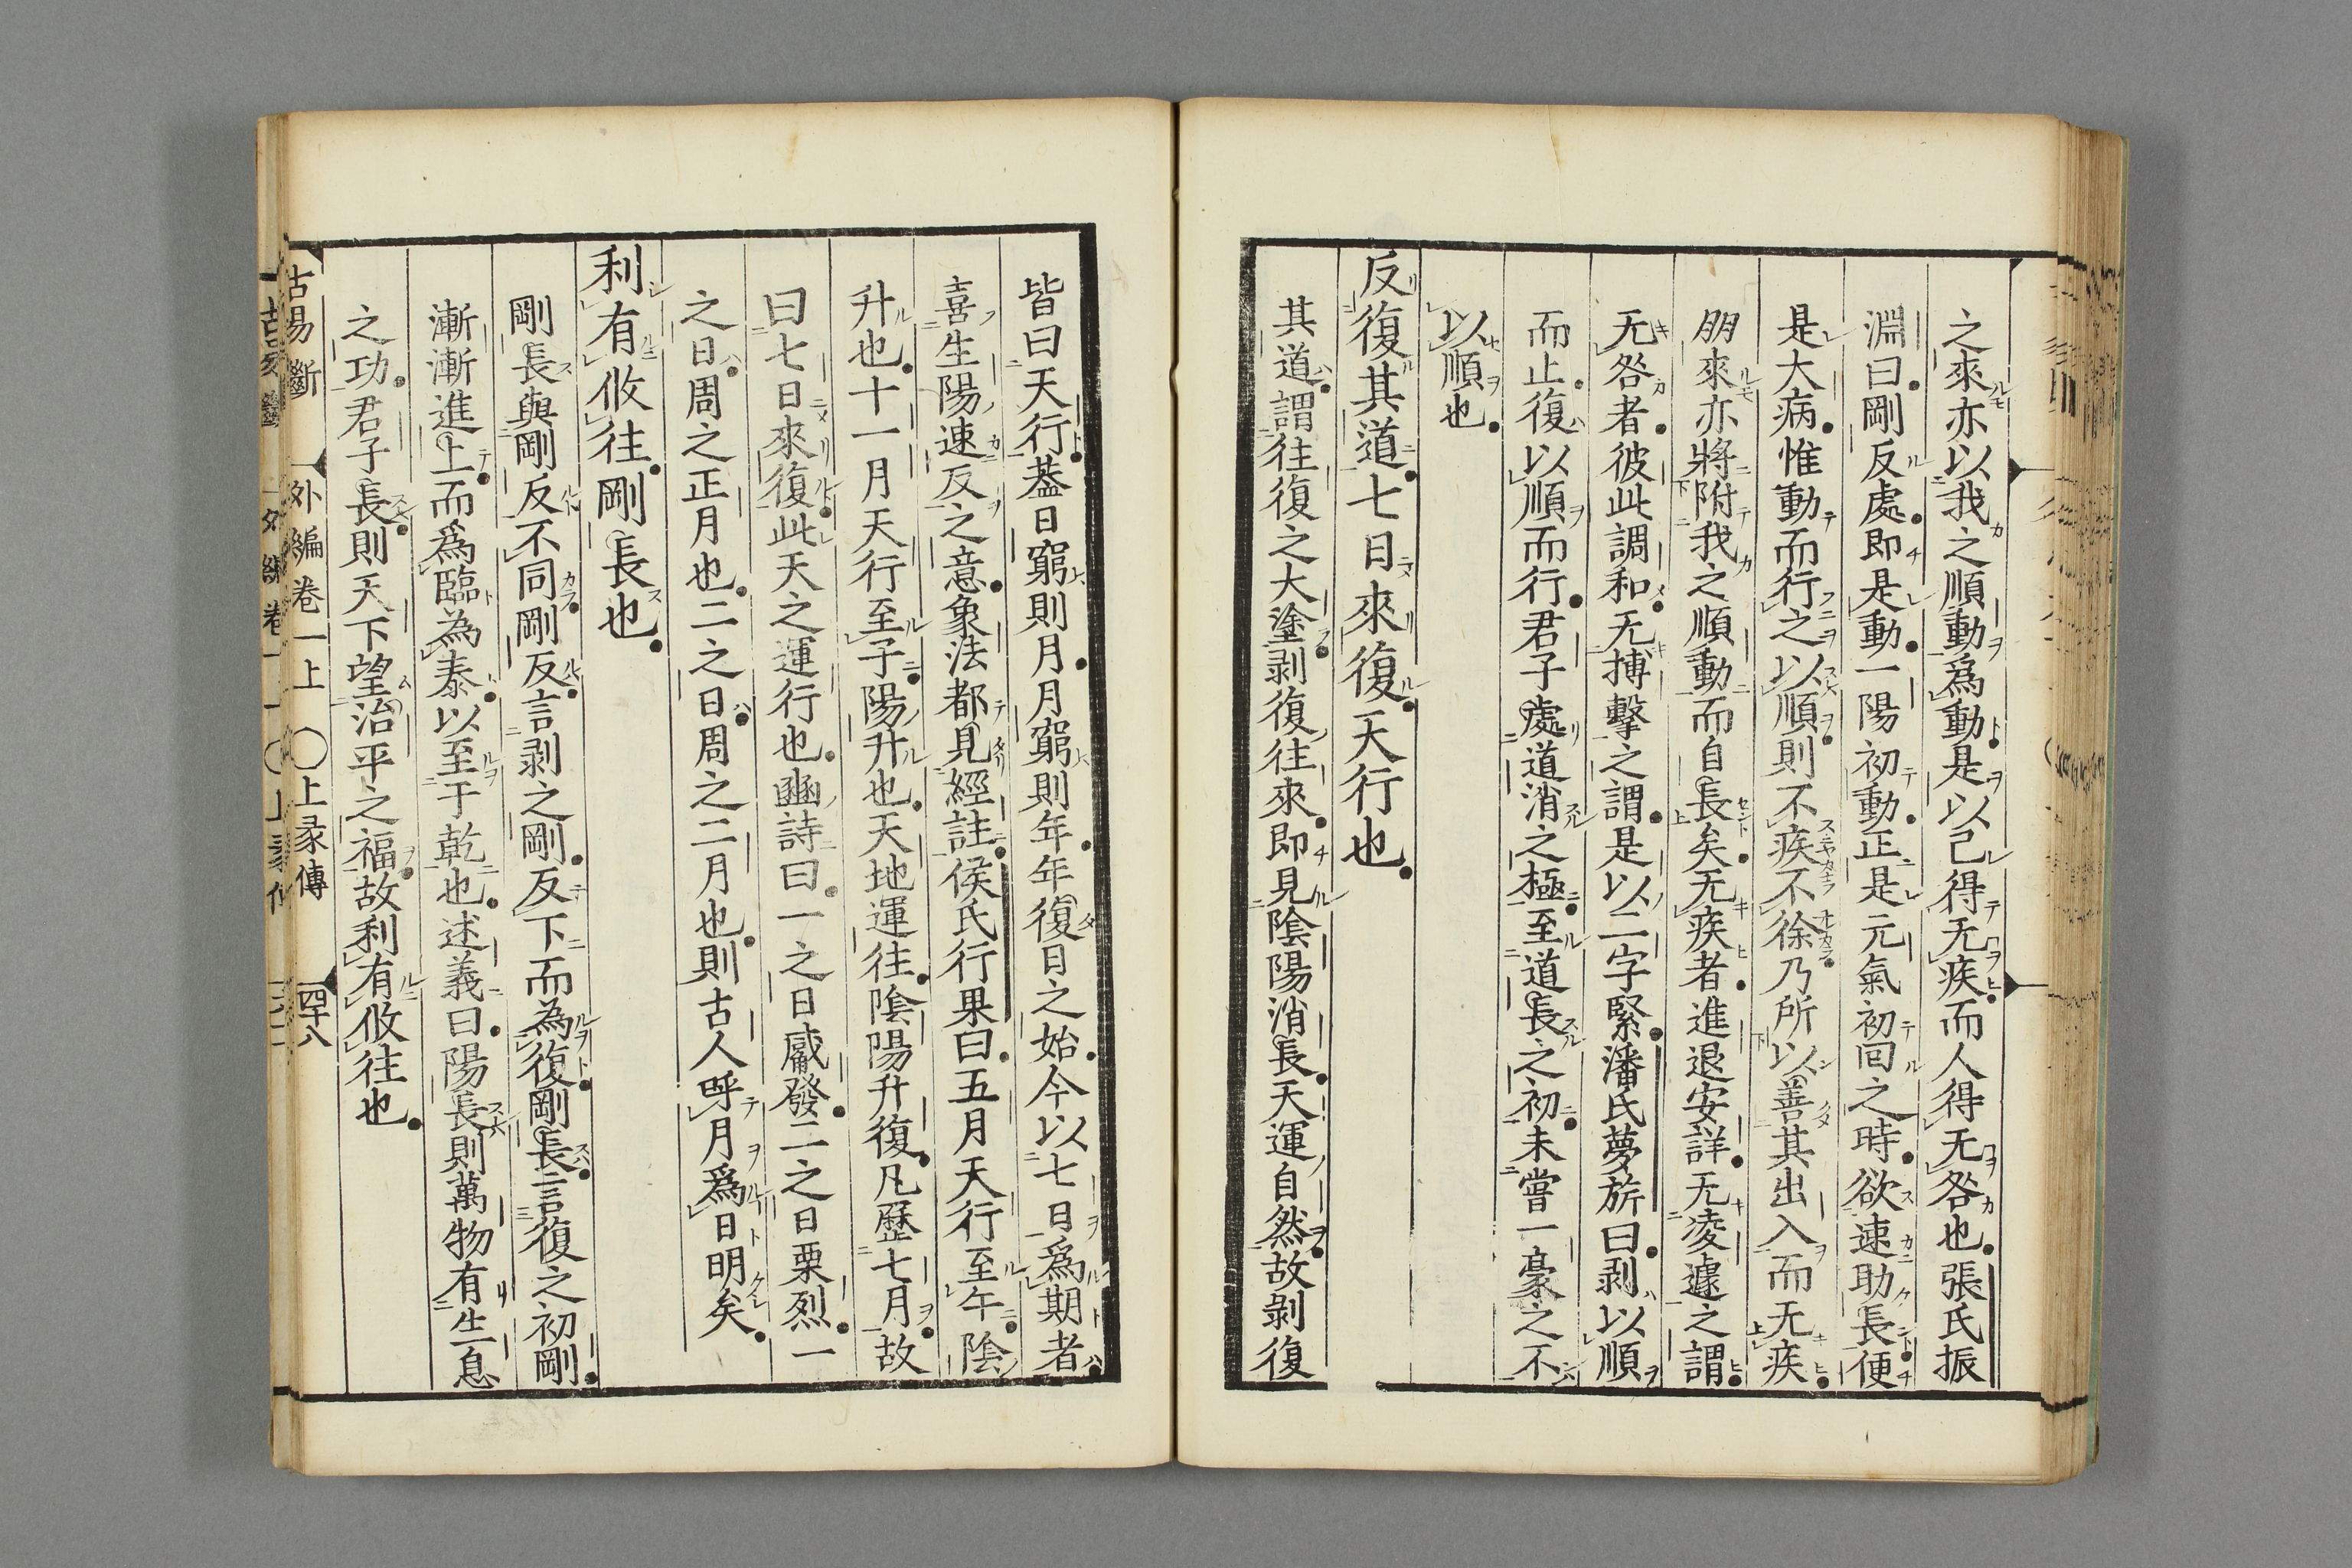 之來亦以我之順動爲動是以己得无疾而人得无咎也張氏振
淵曰剛反處即是動一陽初動正是元氣初回之時欲速助長便
是大病惟動而行之以順則不疾不徐乃所以善其出入而无疾
朋來亦將附我之順動而自長矣无疾者進退安詳无凌遽之謂
无咎者彼此調和无搏擊之謂是以二字緊潘氏夢旂曰剥以順
而止復以順而行君子處道消之極至道長之初未嘗一毫之不
以順也
反復其道七日來復天行也
其道謂往復之大塗剥復往來即見陰陽消長天運自然故剥復
皆曰天行葢日窮則月月窮則年年復日之始今以七日爲期者
喜生陽速反之意象法都見經註侯氏行果曰五月天行至午陰
升也十一月天行至子陽升也天地運往陰陽升復凡歷七月故
曰七日來復此天之運行也豳詩曰一之日觱發二之日栗烈一
之日周之正月也二之日周之二月也則古人呼月爲日明矣
利有攸往剛長也
剛長與剛反不同剛反言剥之剛反下而為復剛長言復之初剛
漸漸進上而爲臨為泰以至于乾也述義曰陽長則萬物有生息
之功君子長則天下望治平之福故利有攸往也
古易斷 外編卷一上 〇上彖傳 四十八